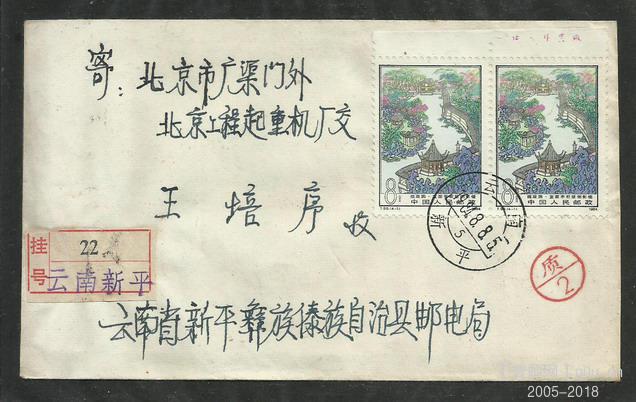 寄：北京市广渠门外
北京工程起重机厂交
王培序收
8分
中国人民邮政
8分
中国人民邮政
1984
云南
1984.8.8.5
新平
挂号
22
云南新平
质
2
云南省新平彝族傣族自治县邮电局
2005-2018